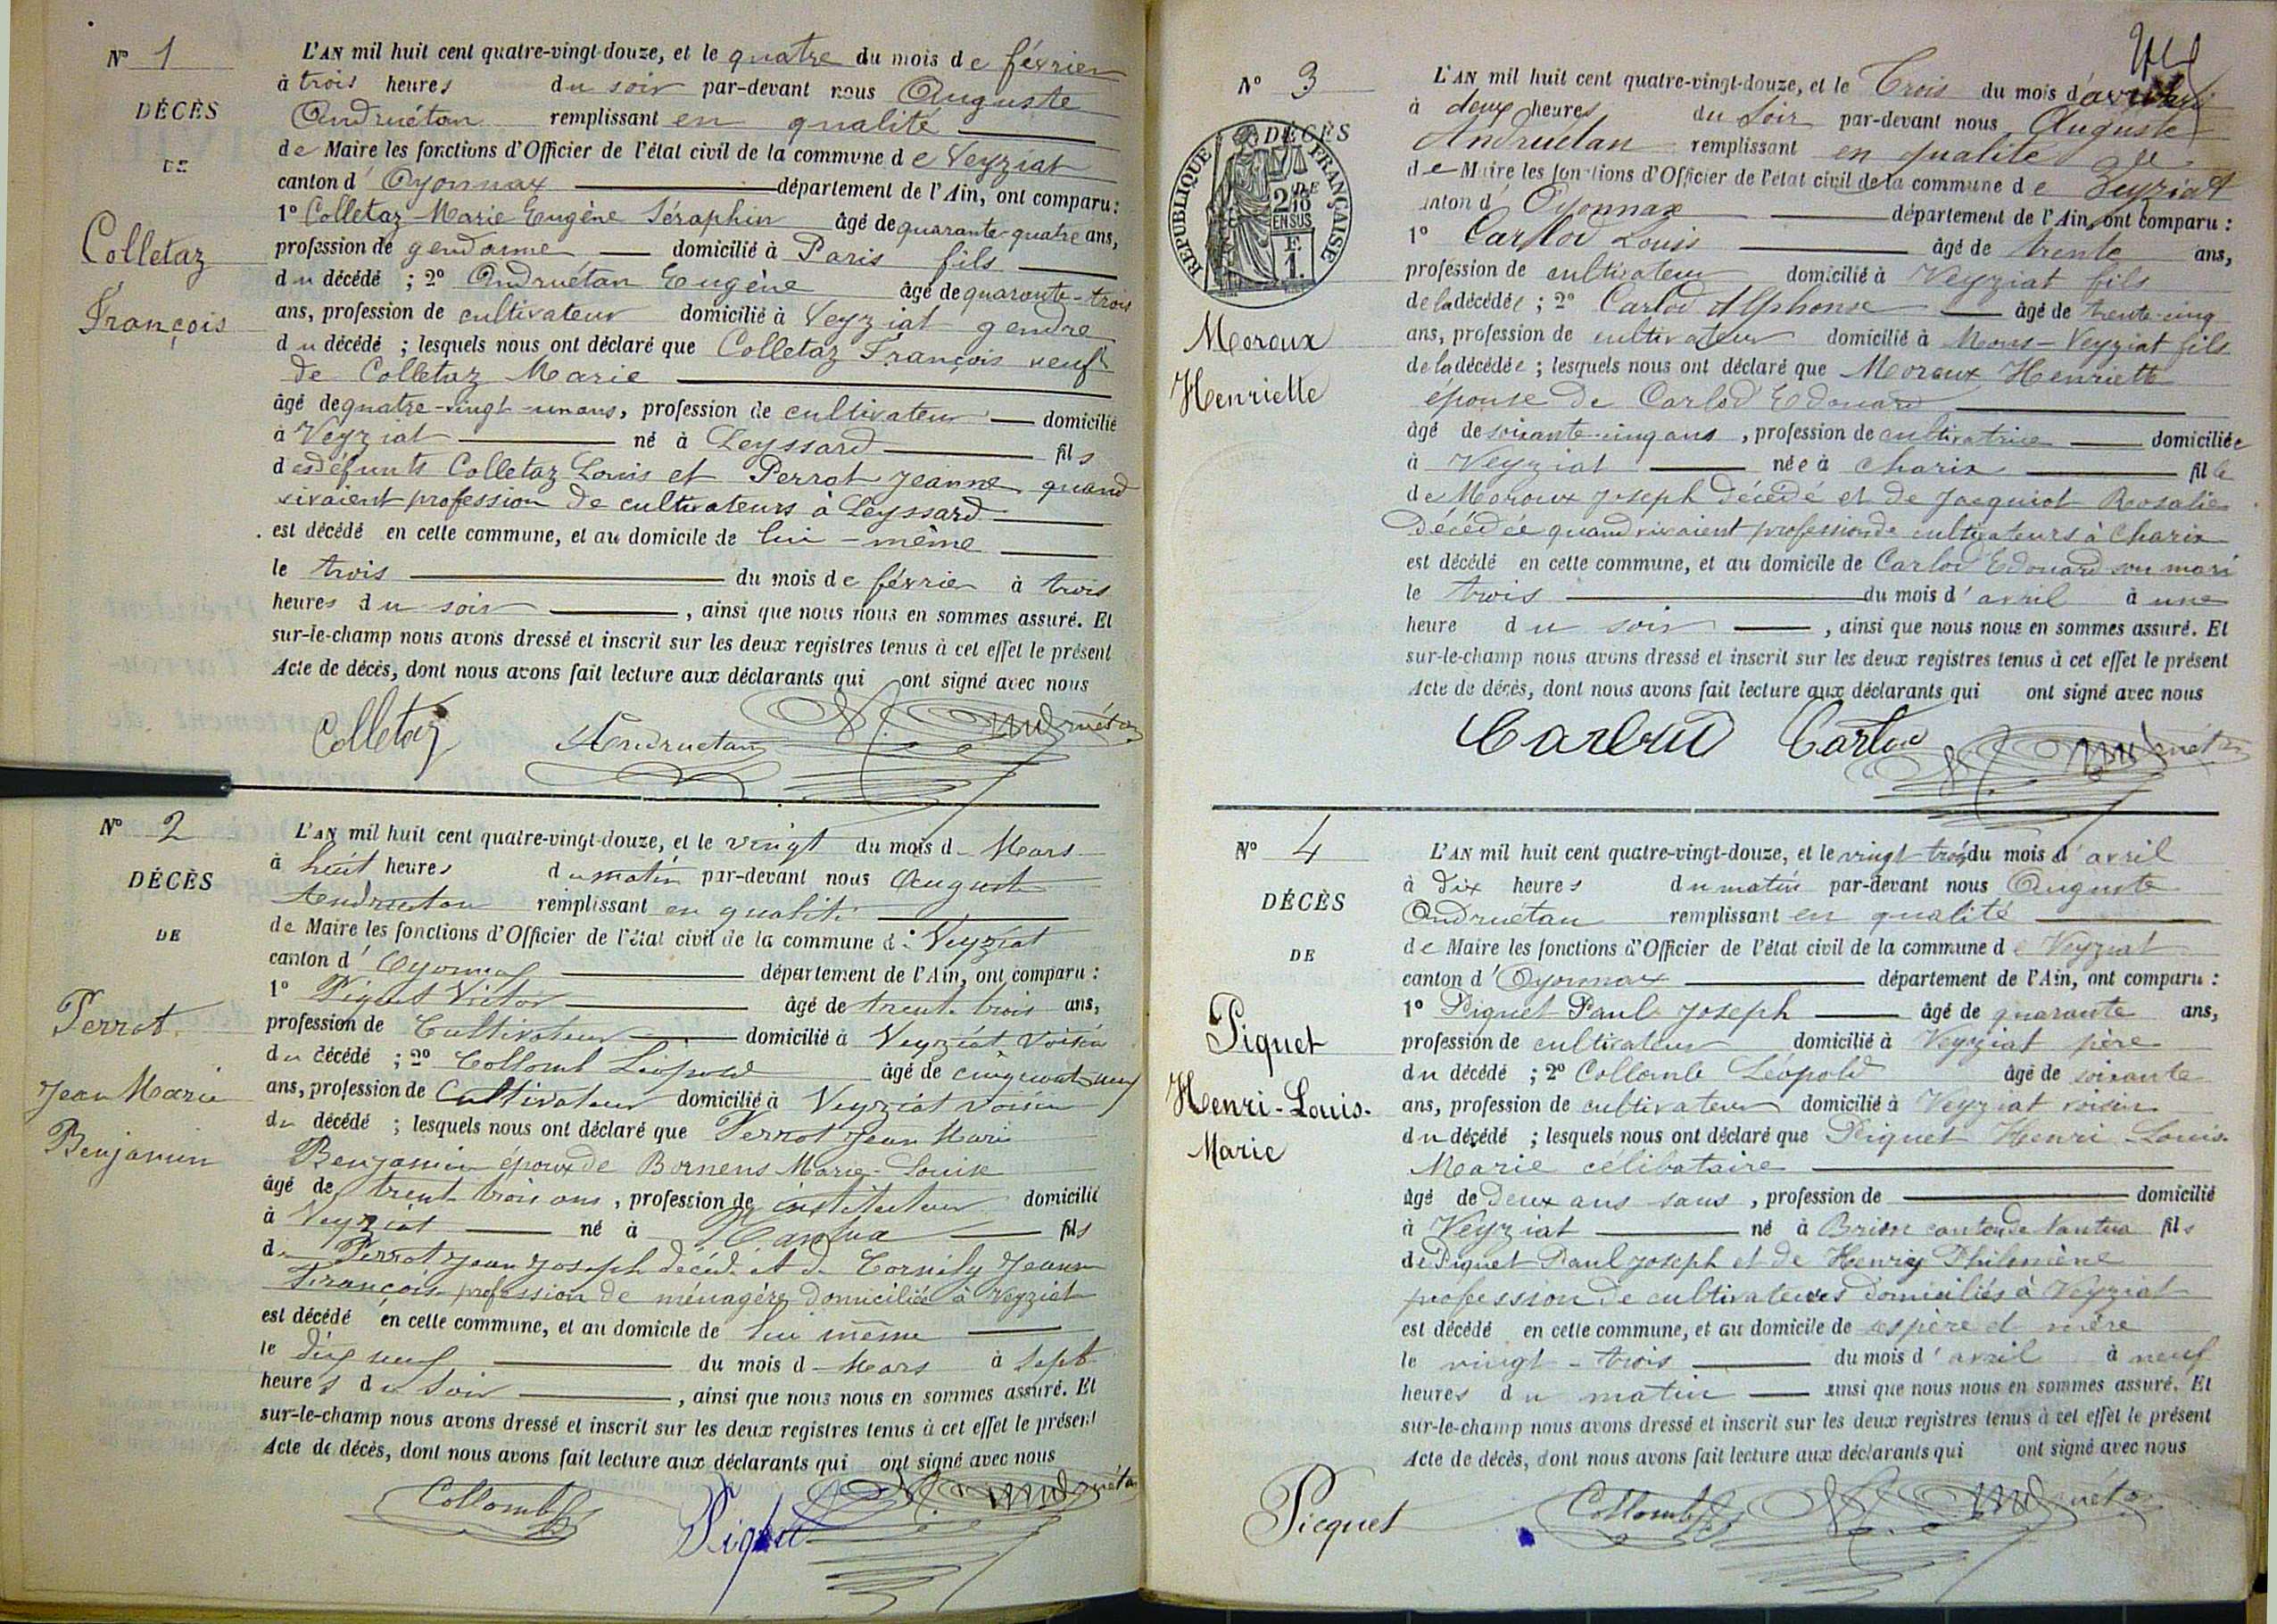 N° 1
DÉCÈS
DE
Colletaz
François
L'AN mil huit cent quatre-vingt-douze, et le quatre du mois de février
à trois heures du soir par-devant nous Auguste
Andruétan remplissant en qualité
de Maire les fonctions d'Officier de l'état civil de la commune de Veyziat
canton d'Oyonnax département de l'Ain, ont comparu :
1° Colletaz Marie Eugène Séraphin âgé de quarante-quatre ans,
profession de gendarme domicilié à Paris fils
du décédé ; 2° Andruétan Eugène âgé de quarante-trois
ans, profession de cultivateur domicilié à Veyziat gendre
du décédé ; lesquels nous ont déclaré que Colletaz François veuf
de Colletaz Marie
âgé de quatre-vingt-un ans, profession de cultivateur domicilié
à Veyziat né à Leyssard fils
des défunts Colletaz Louis et Perrot Jeanne quand
vivaient profession de cultivateurs à Leyssard
est décédé en cette commune, et au domicile de lui-même
le trois du mois de février à trois
heures du soir, ainsi que nous nous en sommes assuré. Et
sur-le-champ nous avons dressé et inscrit sur les deux registres tenus à cet effet le présent
Acte de décès, dont nous avons fait lecture aux déclarants qui ont signé avec nous
Colletaz Andruetan Andruétan
N° 2
DÉCÈS
DE
Perrot
Jean Marie
Benjamin
L'AN mil huit cent quatre-vingt-douze, et le vingt du mois d Mars
à huit heures du matin par-devant nous Auguste
Andruetan remplissant en qualité
de Maire les fonctions d'Officier de l'état civil de la commune de Veyziat
canton d'Oyonnax département de l'Ain, ont comparu :
1° Piquet Victor âgé de trente trois ans,
profession de Cultivateur domicilié à Veyziat voisin
du décédé ; 2° Collomb Léopold âgé de cinquante neuf
ans, profession de Cultivateur domicilié à Veyziat voisin
du décédé ; lesquels nous ont déclaré que Perrot Jean Marie
Benjamin époux de Bornens Marie-Louise
âgé de trente trois ans, profession de instituteur domicilié
à Veyziat né à Nantua fils
de Perrot Jean Joseph décédé et de Jeanne
François profession de ménagère domiciliée à Veyziat
est décédé en cette commune, et au domicile de lui même
le dix neuf du mois d Mars à sept
heures du soir, ainsi que nous nous en sommes assuré. Et
sur-le-champ nous avons dressé et inscrit sur les deux registres tenus à cet effet le présent
Acte de décès, dont nous avons fait lecture aux déclarants qui ont signé avec nous
Collomb Piquet Andruétan
N° 3
DÉCÈS
DE
RÉPUBLIQUE FRANÇAISE
2/10 EN SUS
F. 1.
Moroux
Henriette
L'AN mil huit cent quatre-vingt-douze, et le Trois du mois d'avril
à deux heures du soir par-devant nous Auguste
Andruétan remplissant en qualité de
de Maire les fonctions d'Officier de l'état civil de la commune de Veyziat
canton d'Oyonnax département de l'Ain, ont comparu :
1° Carlod Louis âgé de trente ans,
profession de cultivateur domicilié à Veyziat fils
de la décédée ; 2° Carlod Alphonse âgé de trente-cinq
ans, profession de cultivateur domicilié à Mons-Veyziat fils
de la décédée ; lesquels nous ont déclaré que Moroux Henriette
épouse de Carlod Edouard
âgé de soixante-cinq ans, profession de cultivatrice domiciliée
à Veyziat née à Charix fille
de Moroux Joseph décédé et de Jacquiot Rosalie
décédée quand vivaient profession de cultivateurs à Charix
est décédé en cette commune, et au domicile de Carlod Edouard son mari
le trois du mois d'avril à une
heure du soir, ainsi que nous nous en sommes assuré. Et
sur-le-champ nous avons dressé et inscrit sur les deux registres tenus à cet effet le présent
Acte de décès, dont nous avons fait lecture aux déclarants qui ont signé avec nous
Carlod Carlod Andruétan
N° 4
DÉCÈS
DE
Piquet
Henri-Louis-
Marie
L'AN mil huit cent quatre-vingt-douze, et le vingt-trois du mois d'avril
à dix heures du matin par-devant nous Auguste
Andruétan remplissant en qualité
de Maire les fonctions d'Officier de l'état civil de la commune de Veyziat
canton d'Oyonnax département de l'Ain, ont comparu :
1° Piquet Paul Joseph âgé de quarante ans,
profession de cultivateur domicilié à Veyziat père
du décédé ; 2° Collomb Léopold âgé de soixante
ans, profession de cultivateur domicilié à Veyziat voisin
du décédé ; lesquels nous ont déclaré que Piquet Henri Louis
Marie célibataire
âgé de deux ans sans, profession de domicilié
à Veyziat né à Brion canton de Nantua fils
de Piquet Paul Joseph et de Henry Philomène
profession de cultivateurs domiciliés à Veyziat
est décédé en cette commune, et au domicile de ses père et mère
le vingt-trois du mois d'avril à neuf
heures du matin ainsi que nous nous en sommes assuré. Et
sur-le-champ nous avons dressé et inscrit sur les deux registres tenus à cet effet le présent
Acte de décès, dont nous avons fait lecture aux déclarants qui ont signé avec nous
Picquet Collomb Andruétan